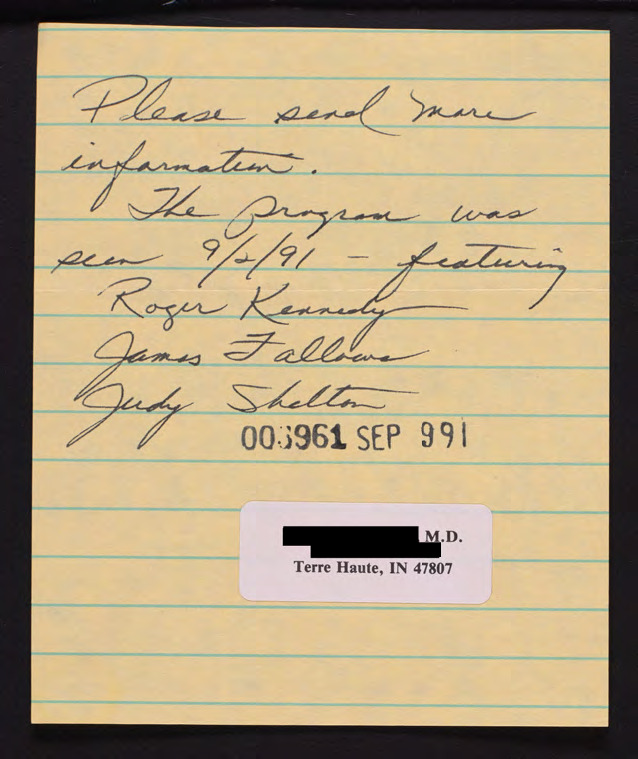 Please send more
information.
The program was
seen 9/2/91 – featuring
Roger Kennedy
James Fallows
Judy Shelton
003961 SEP 991
M.D.
Terre Haute, IN 47807